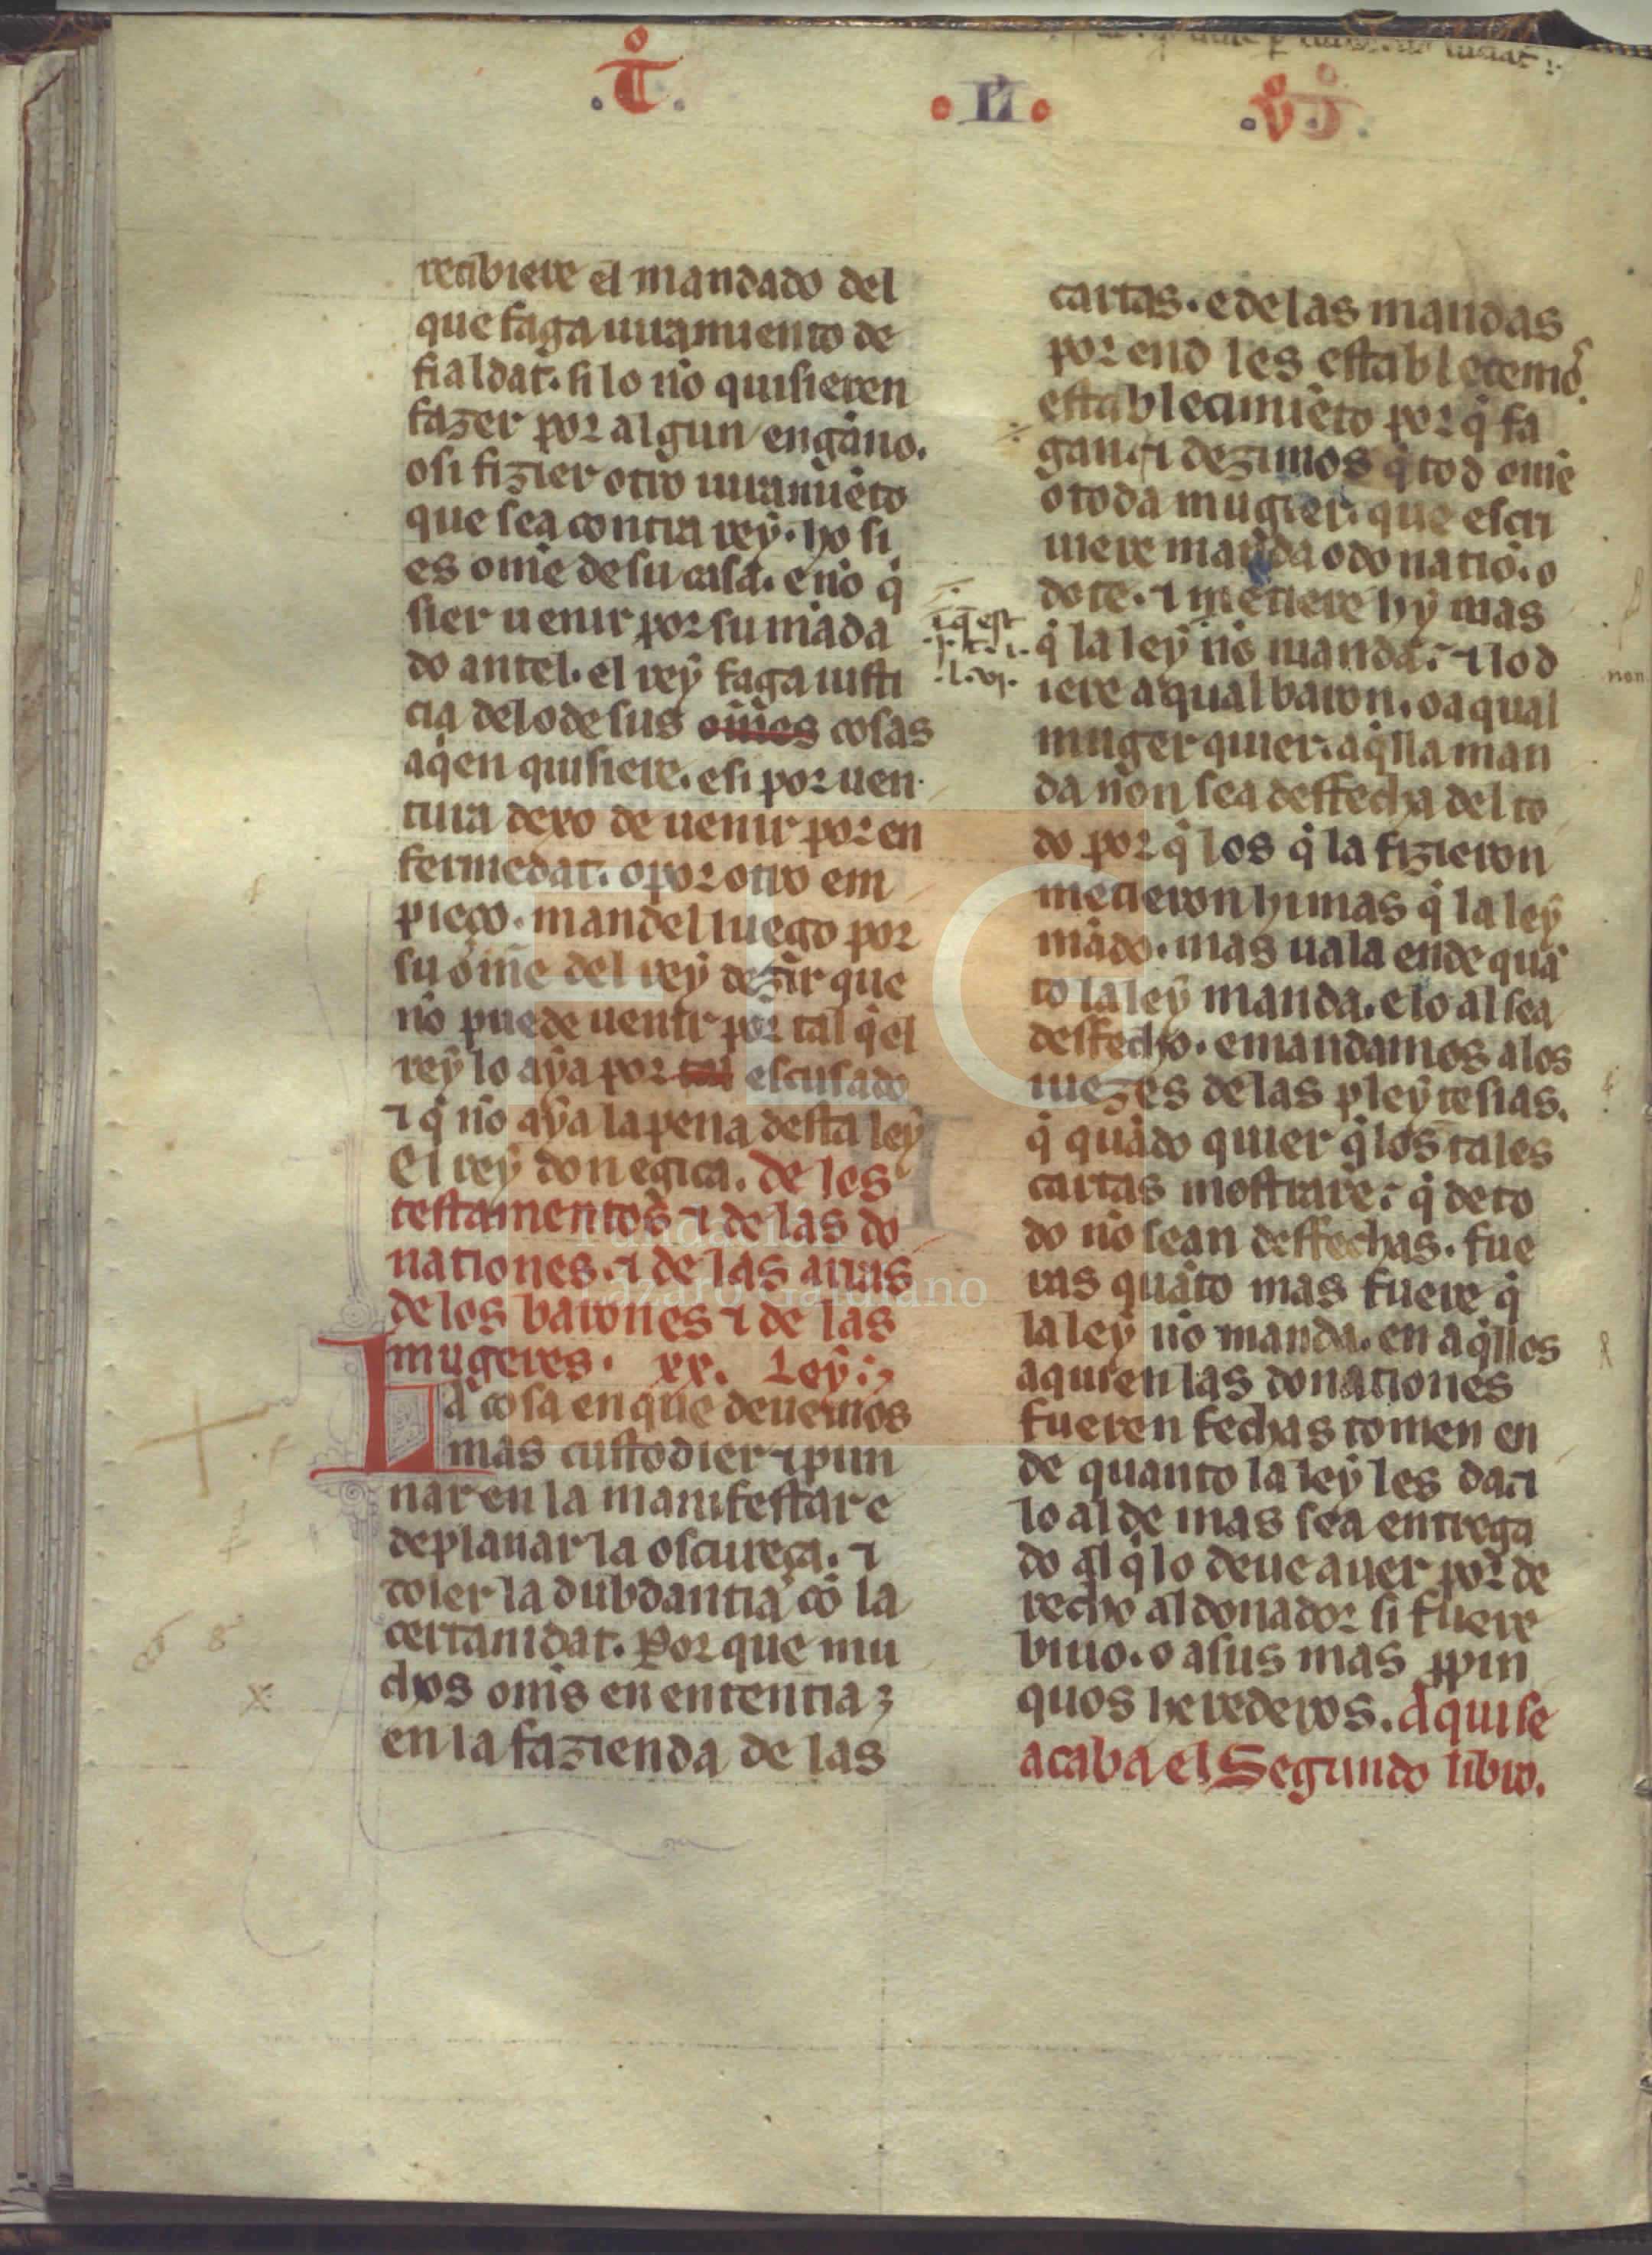 .T.
.II.
.VI.
recibiere el mandado del
que faga iuramiento de
fialdat. si lo nõ quisieren
fazer por algun engãno.
o si fizier otro iuramiẽto
que sea contra reẏ. ho si
es om̃e de su casa. e nõ q̃
sier uenir por su mãda
do antel. el reẏ faga iusti
cia del o de sus om̃es cosas
aq̃en quisiere. e si por uen
tura dexo de uenir por en
fermedat. o por otro em
pieço. mandel luego por
su om̃e del reẏ dezir que
nõ puede uenir por tal q̃ el
reẏ lo aẏa por tal escusado
⁊ q̃ nõ aẏa la pena desta leẏ
El reẏ don egica. de los
testamentos ⁊ de las do
nationes. ⁊ de las arras
de los barones ⁊ de las
mugeres. xx. Leẏ.
La cosa en que deuemos
mas custodier ⁊ pun
nar en la manifestar e
deplanar la oscureça. ⁊
toler la dubdantia cõ la
certanidat. Por que mu
chos om̃s en ententia ⁊
en la fazienda de las
cartas. e de las mandas
por end les establecemos
establecimiẽto por q̃ fa
gan. ⁊ dezimos q̃ tod om̃e
o toda mugier. que escri
uiere manda o donatiõ. o
dote. ⁊ metiere hẏ mas
q̃ la leẏ nõ manda. ⁊ lo d
iere a qual baron. o a qual
muger quier. aq̃lla man
da non sea deffecha del to
do por q̃ los q̃ la fizieron
metieron hi mas q̃ la leẏ
mãdo. mas uala ende quã
to la leẏ manda. e lo al sea
deffecho. e mandamos a los
iuezes de las pleẏtesias.
q̃ quãdo quier q̃ los tales
cartas mostrarẽ. q̃ de to
do nõ sean deffechas. fue
ras quãto mas fuere q̃
la leẏ nõ manda. en aq̃llos
a quien las donationes
fueren fechas tomen en
de quanto la leẏ les da. ⁊
lo al de mas sea entrega
do al q̃ lo deue auer por de
recho al donador si fuere
biuo. o a sus mas ꝓpin
quos herederos. Aqui se
acaba el Segundo libro.
non
Fundación
Lázaro Galdiano